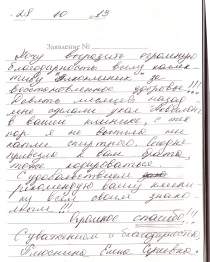 28 10 13
Заявление №
Хочу выразить огромную
благодарность всему коллек-
тиву клиники за
восстановленное здоровье!!!
Девять месяцев назад
мне сделали укол
в вашей клинике, с тех
пор я не выпила ни
капли спиртного. Сегодня
привела к вам брата,
тоже кодироваться.
С удовольствием
рекомендую вашу клини-
ку всем своим знако-
мым!!!
Огромное спасибо!!!
С уважением и благодарностью,
Елена